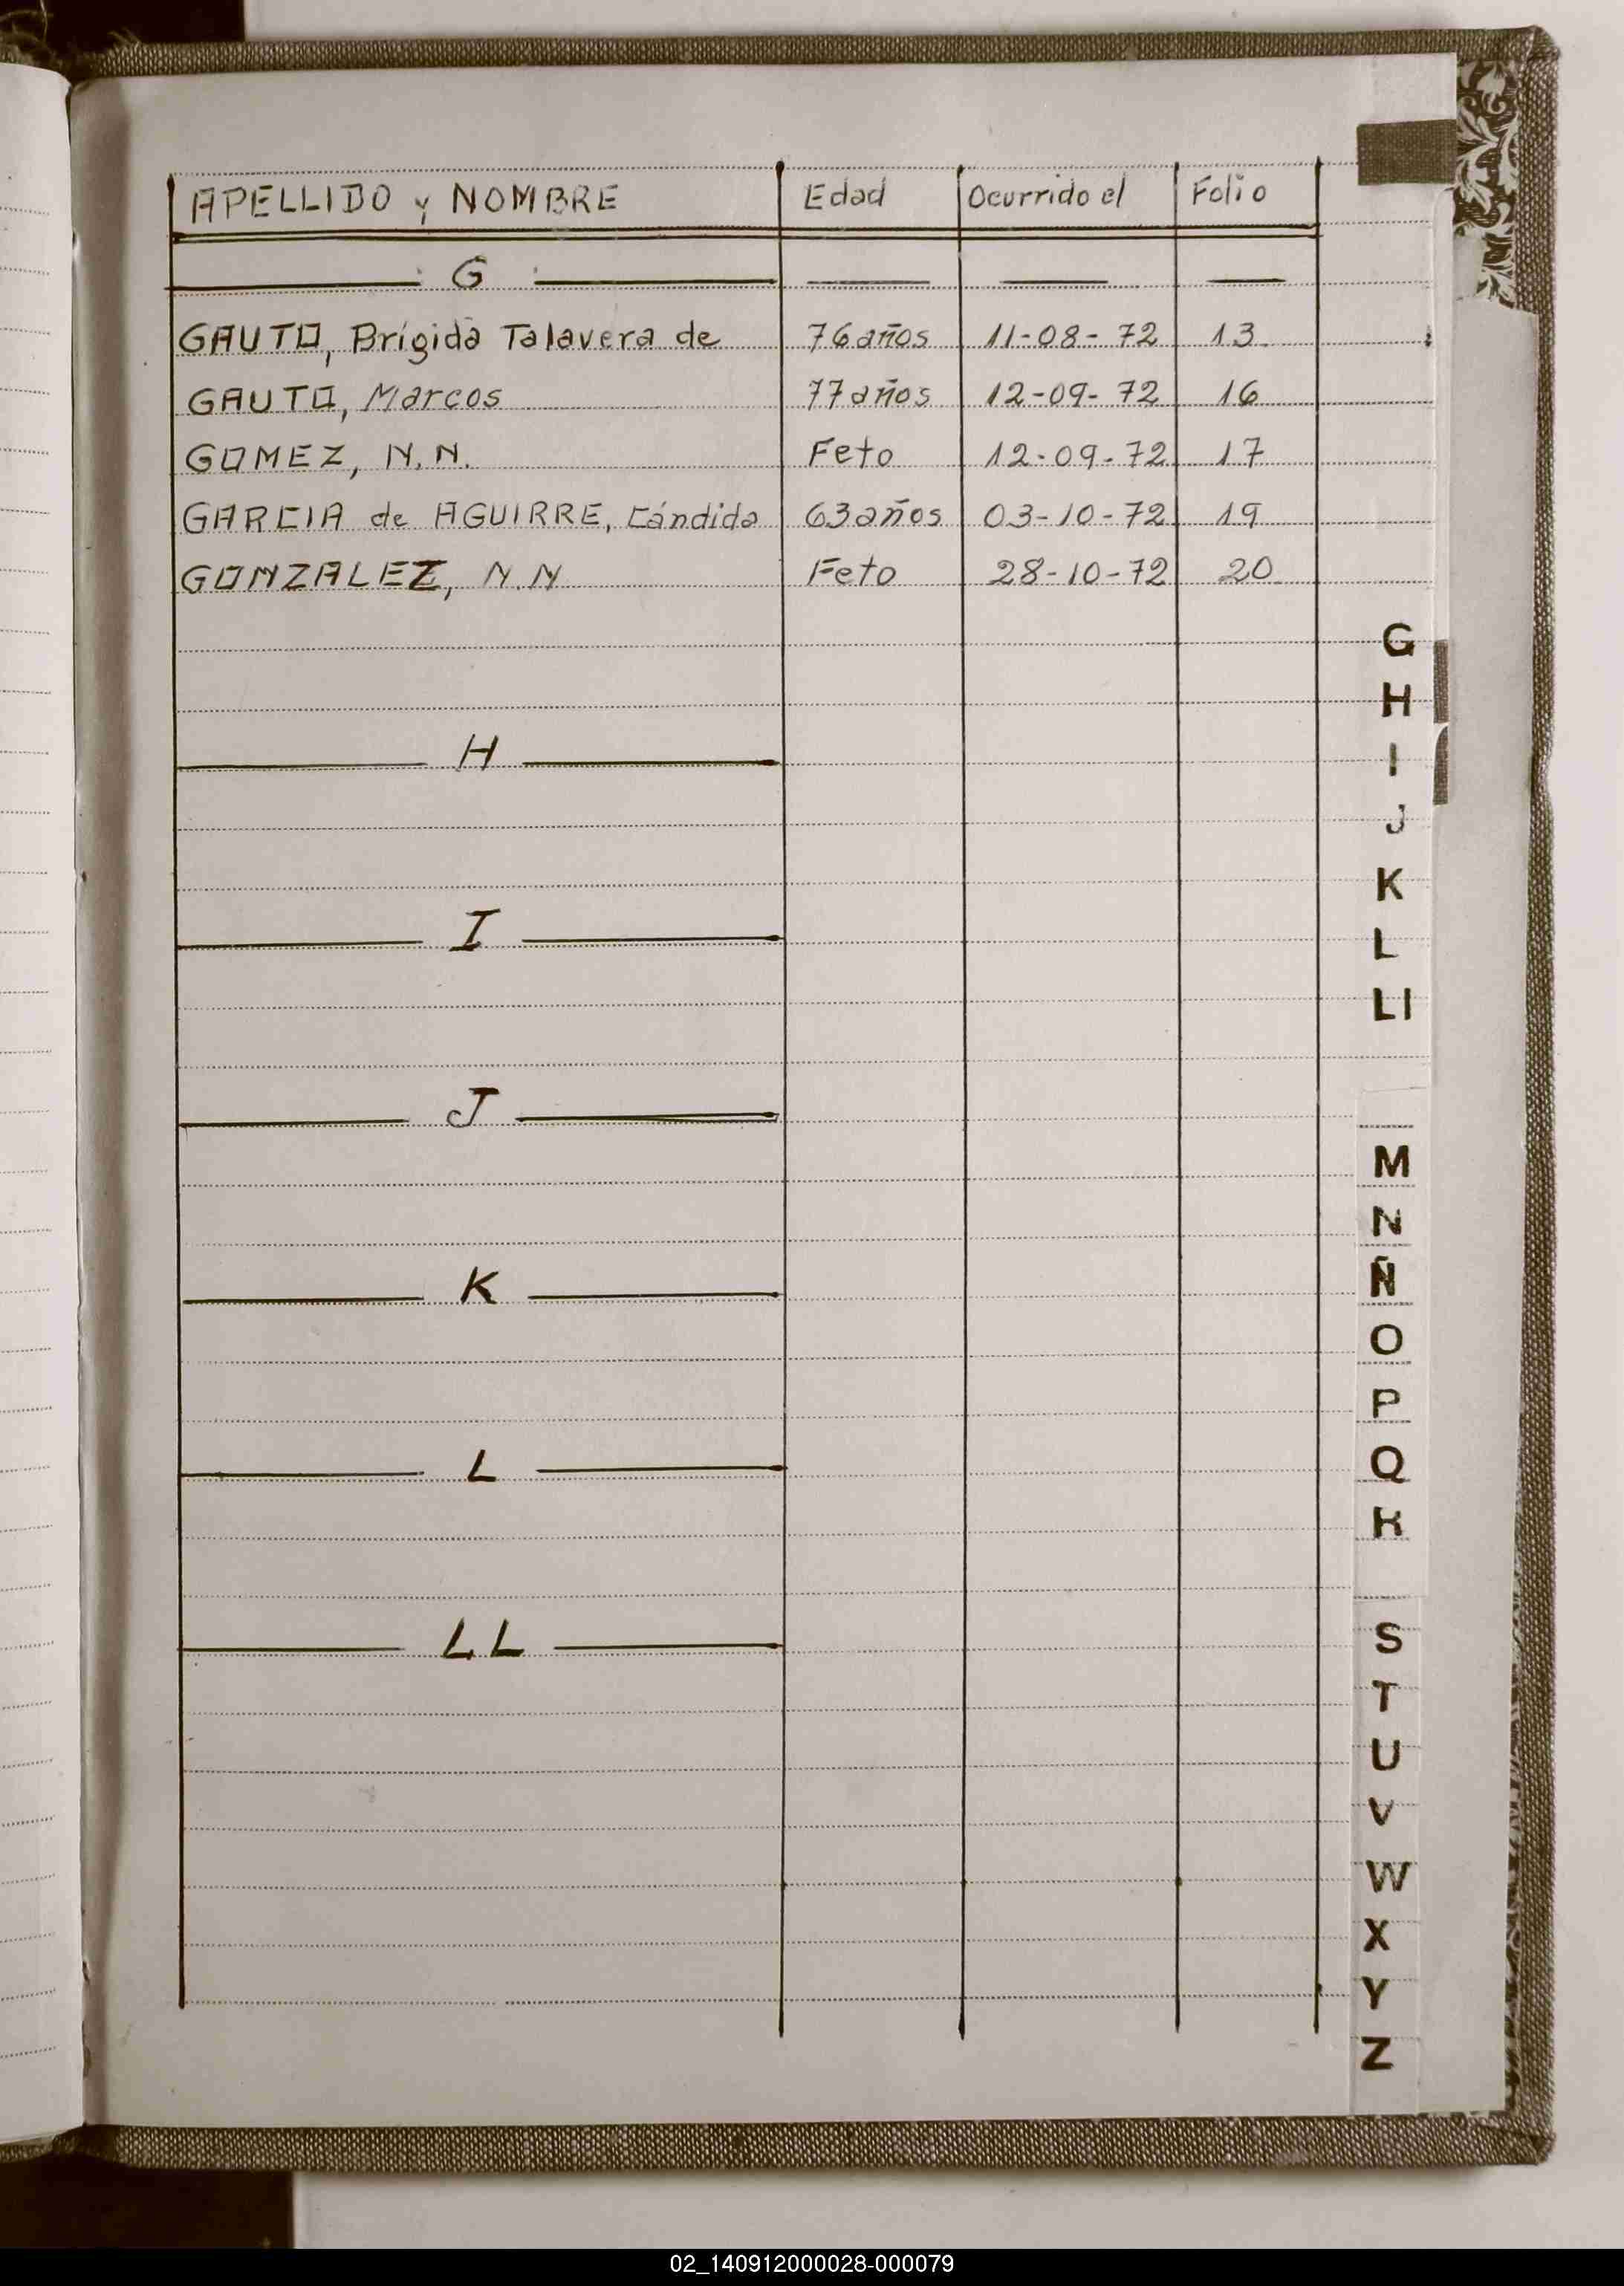 APELLIDO y NOMBRE Edad Ocurrido el Folio
G
GAUTO, Brígida Talavera de 76 años 11-08-72 13
GAUTO, Marcos 77 años 12-09-72 16
GOMEZ, N.N. Feto 12-09-72 17
GARCIA de AGUIRRE, Cándida 63 años 03-10-72 19
GONZALEZ, N.N Feto 28-10-72 20
H
I
J
K
L
LL
G
H
I
J
K
L
Ll
M
N
Ñ
O
P
Q
R
S
T
U
V
W
X
Y
Z
02_140912000028-000079